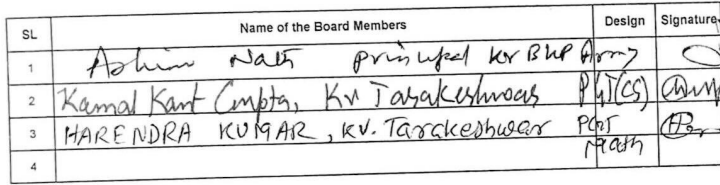 SL Name of the Board Members Design Signature
1 Ashim Nath principal KV BKP Army
2 Kamal Kant Gupta, KV Tarakeshwar PGT(CS)
3 HARENDRA KUMAR, KV. Tarakeshwar PGT Math
4